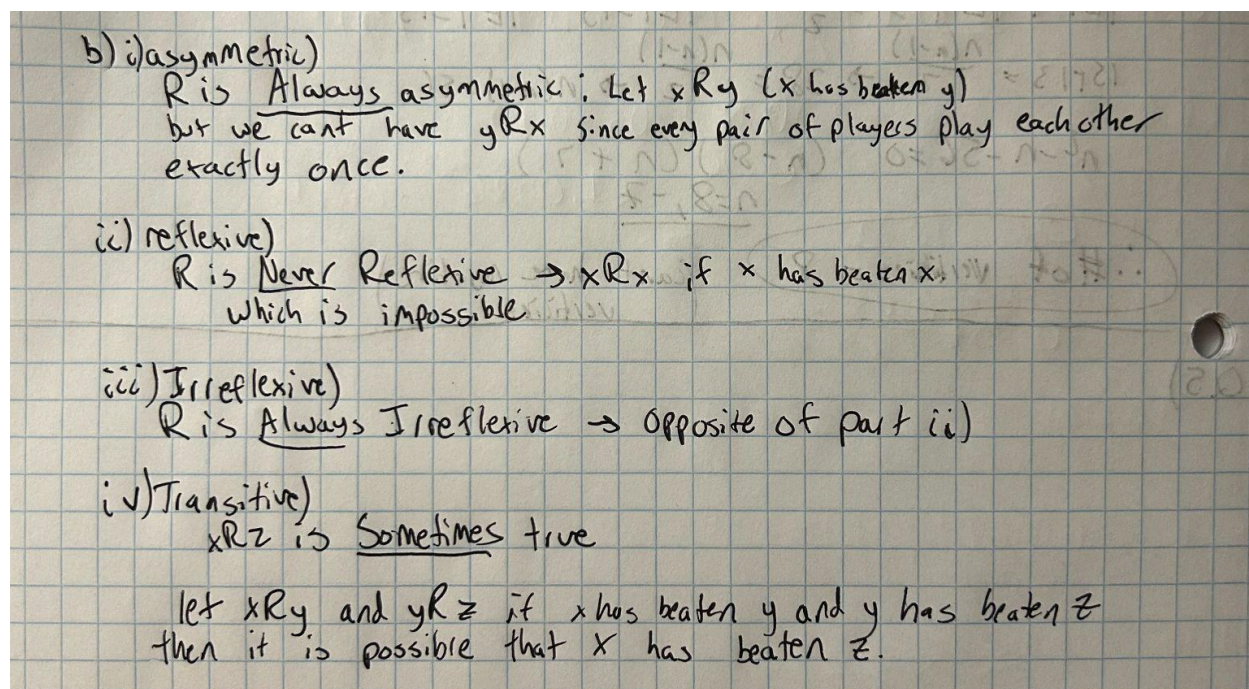 b) i) asymmetric)
R is Always asymmetric: Let xRy (x has beaten y)
but we cant have yRx since every pair of players play each other
exactly once.
ii) reflexive)
R is Never Reflexive → xRx if x has beaten x.
which is impossible
iii) Irreflexive)
R is Always Irreflexive → Opposite of part ii)
iv) Transitive)
xRz is Sometimes true
let xRy and yRz if x has beaten y and y has beaten z
then it is possible that x has beaten z.